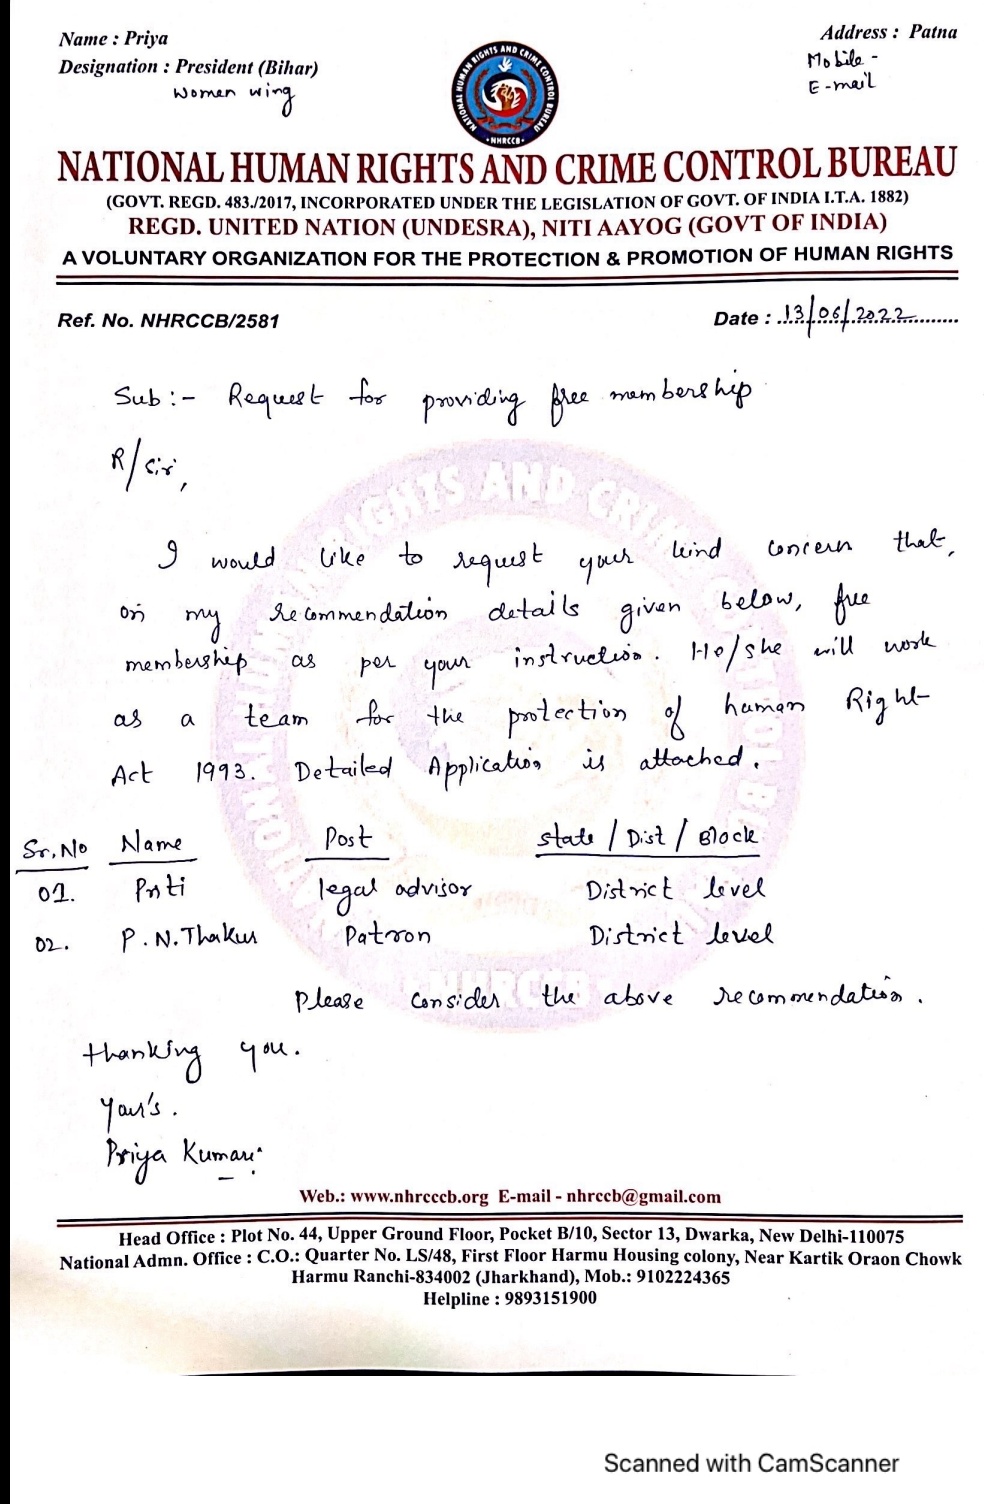 Name : Priya
Address : Patna
Designation : President (Bihar)
Mobile -
Women wing
E-mail
NATIONAL HUMAN RIGHTS AND CRIME CONTROL BUREAU
NHRCCB
NATIONAL HUMAN RIGHTS AND CRIME CONTROL BUREAU
(GOVT. REGD. 483./2017, INCORPORATED UNDER THE LEGISLATION OF GOVT. OF INDIA I.T.A. 1882)
REGD. UNITED NATION (UNDESRA), NITI AAYOG (GOVT OF INDIA)
A VOLUNTARY ORGANIZATION FOR THE PROTECTION & PROMOTION OF HUMAN RIGHTS
Ref. No. NHRCCB/2581
Date : 13/06/2022
Sub :- Request for providing free membership
R/Sir,
I would like to request your kind concern that,
on my recommendation details given below, free
membership as per your instruction. He/she will work
as a team for the protection of human Right
Act 1993. Detailed Application is attached.
Sr. No Name Post state / Dist / Block
01. Priti legal advisor District level
02. P. N. Thakur Patron District level
Please consider the above recommendation.
thanking you.
Your's.
Priya Kumari
Web.: www.nhrcccb.org E-mail - nhrccb@gmail.com
Head Office : Plot No. 44, Upper Ground Floor, Pocket B/10, Sector 13, Dwarka, New Delhi-110075
National Admn. Office : C.O.: Quarter No. LS/48, First Floor Harmu Housing colony, Near Kartik Oraon Chowk
Harmu Ranchi-834002 (Jharkhand), Mob.: 9102224365
Helpline : 9893151900
Scanned with CamScanner